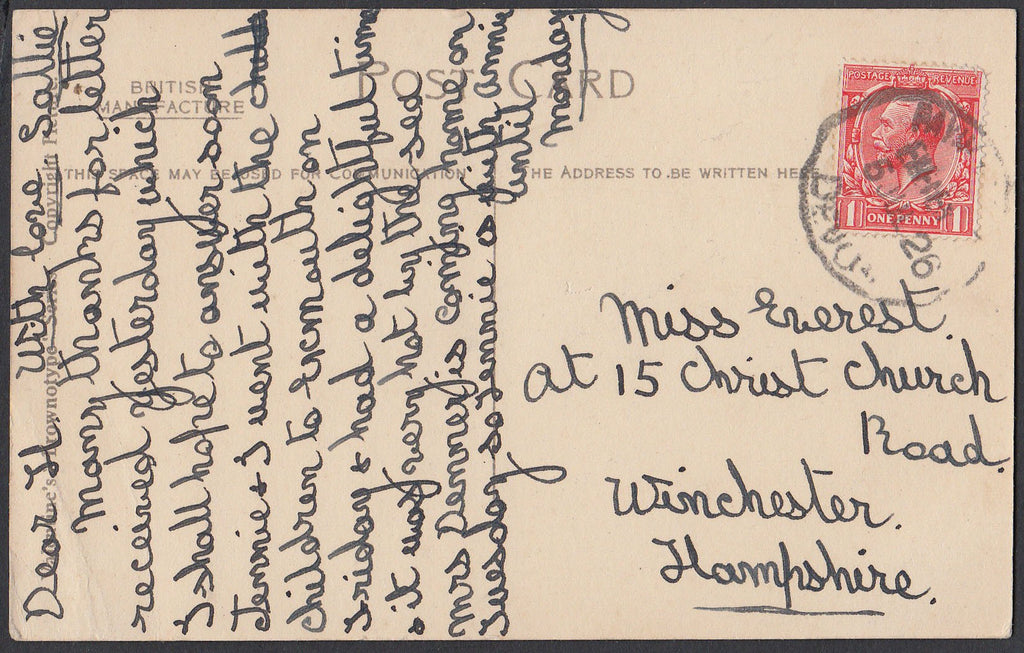 BRITISH
MANUFACTURE
POST CARD
THIS SPACE MAY BE USED FOR COMMUNICATION
THE ADDRESS TO BE WRITTEN HERE
Copyright
Brownotype Series
POSTAGE REVENUE
1 ONE PENNY 1
26
Dear H. With love Sallie
Many thanks for letter
received yesterday which
I shall hope to answer soon
Jennie & I went with the
children to Exmouth on
Friday & had a delightful time
& it was very hot by the sea
Mrs Denner is coming home on
Tuesday so Jennie is with Annie
until
Monday
Miss Everest
At 15 Christ Church
Road.
Winchester.
Hampshire.